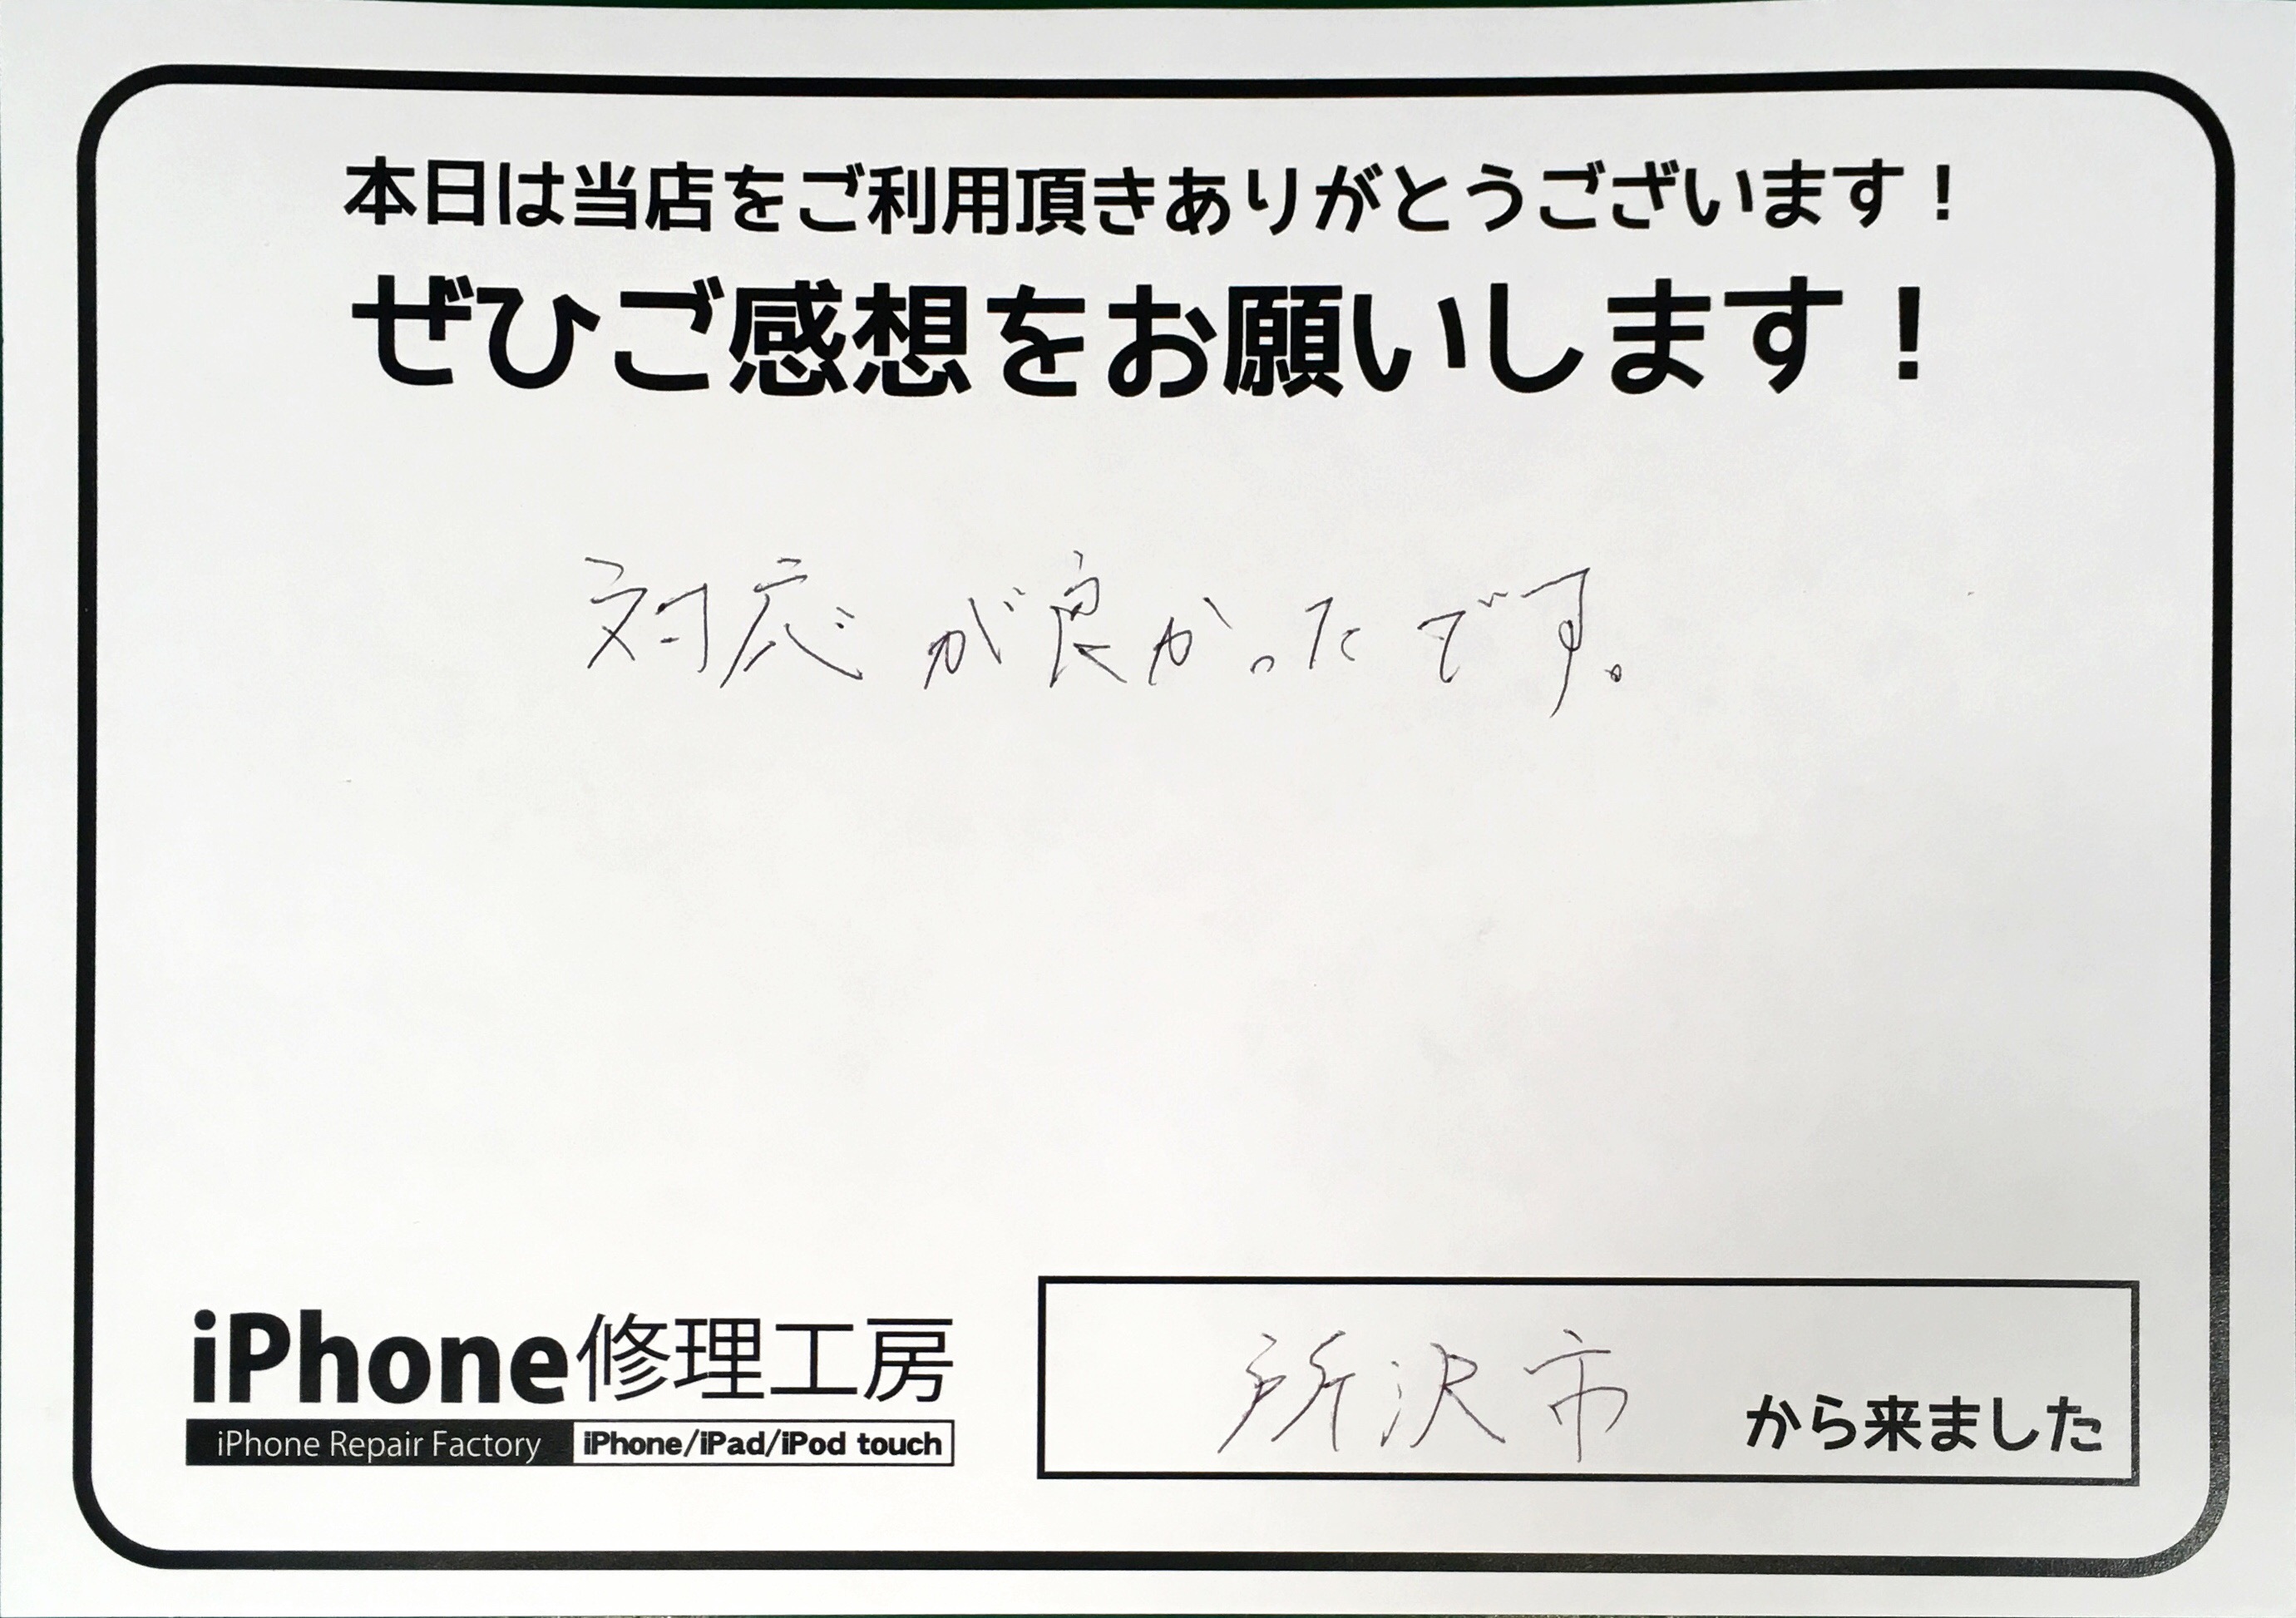 本日は当店をご利用頂きありがとうございます！
ぜひご感想をお願いします！
対応が良かったです。
iPhone修理工房
iPhone Repair Factory iPhone/iPad/iPod touch
所沢市 から来ました